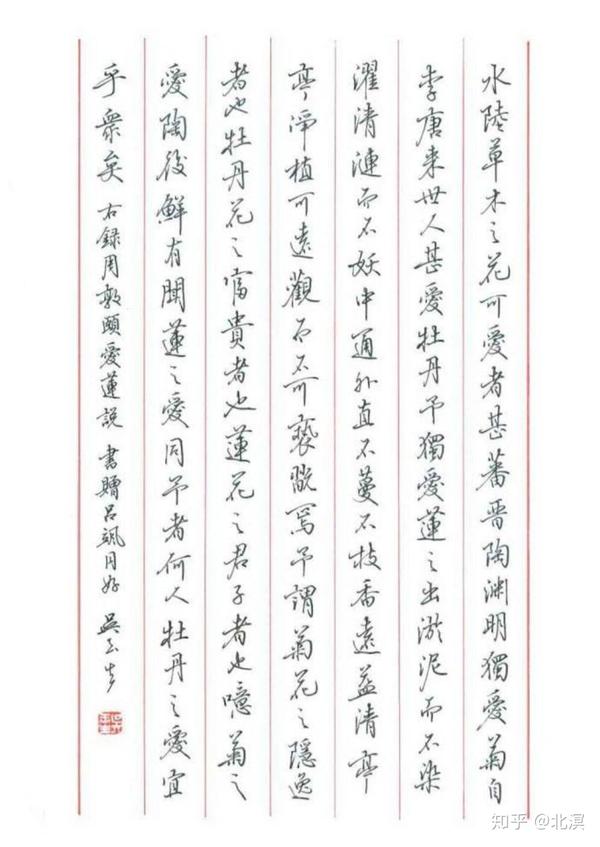 水陸草木之花可愛者甚蕃晉陶淵明獨愛菊自
李唐来世人甚愛牡丹予獨愛蓮之出淤泥而不染
濯清漣而不妖中通外直不蔓不枝香遠益清亭
亭淨植可遠觀而不可褻翫焉予謂菊花之隱逸
者也牡丹花之富貴者也蓮花之君子者也噫菊之
愛陶後鮮有聞蓮之愛同予者何人牡丹之愛宜
乎衆矣 右録周敦頤愛蓮説 書贈呂颯同好 吳玉生
知乎 @北溟